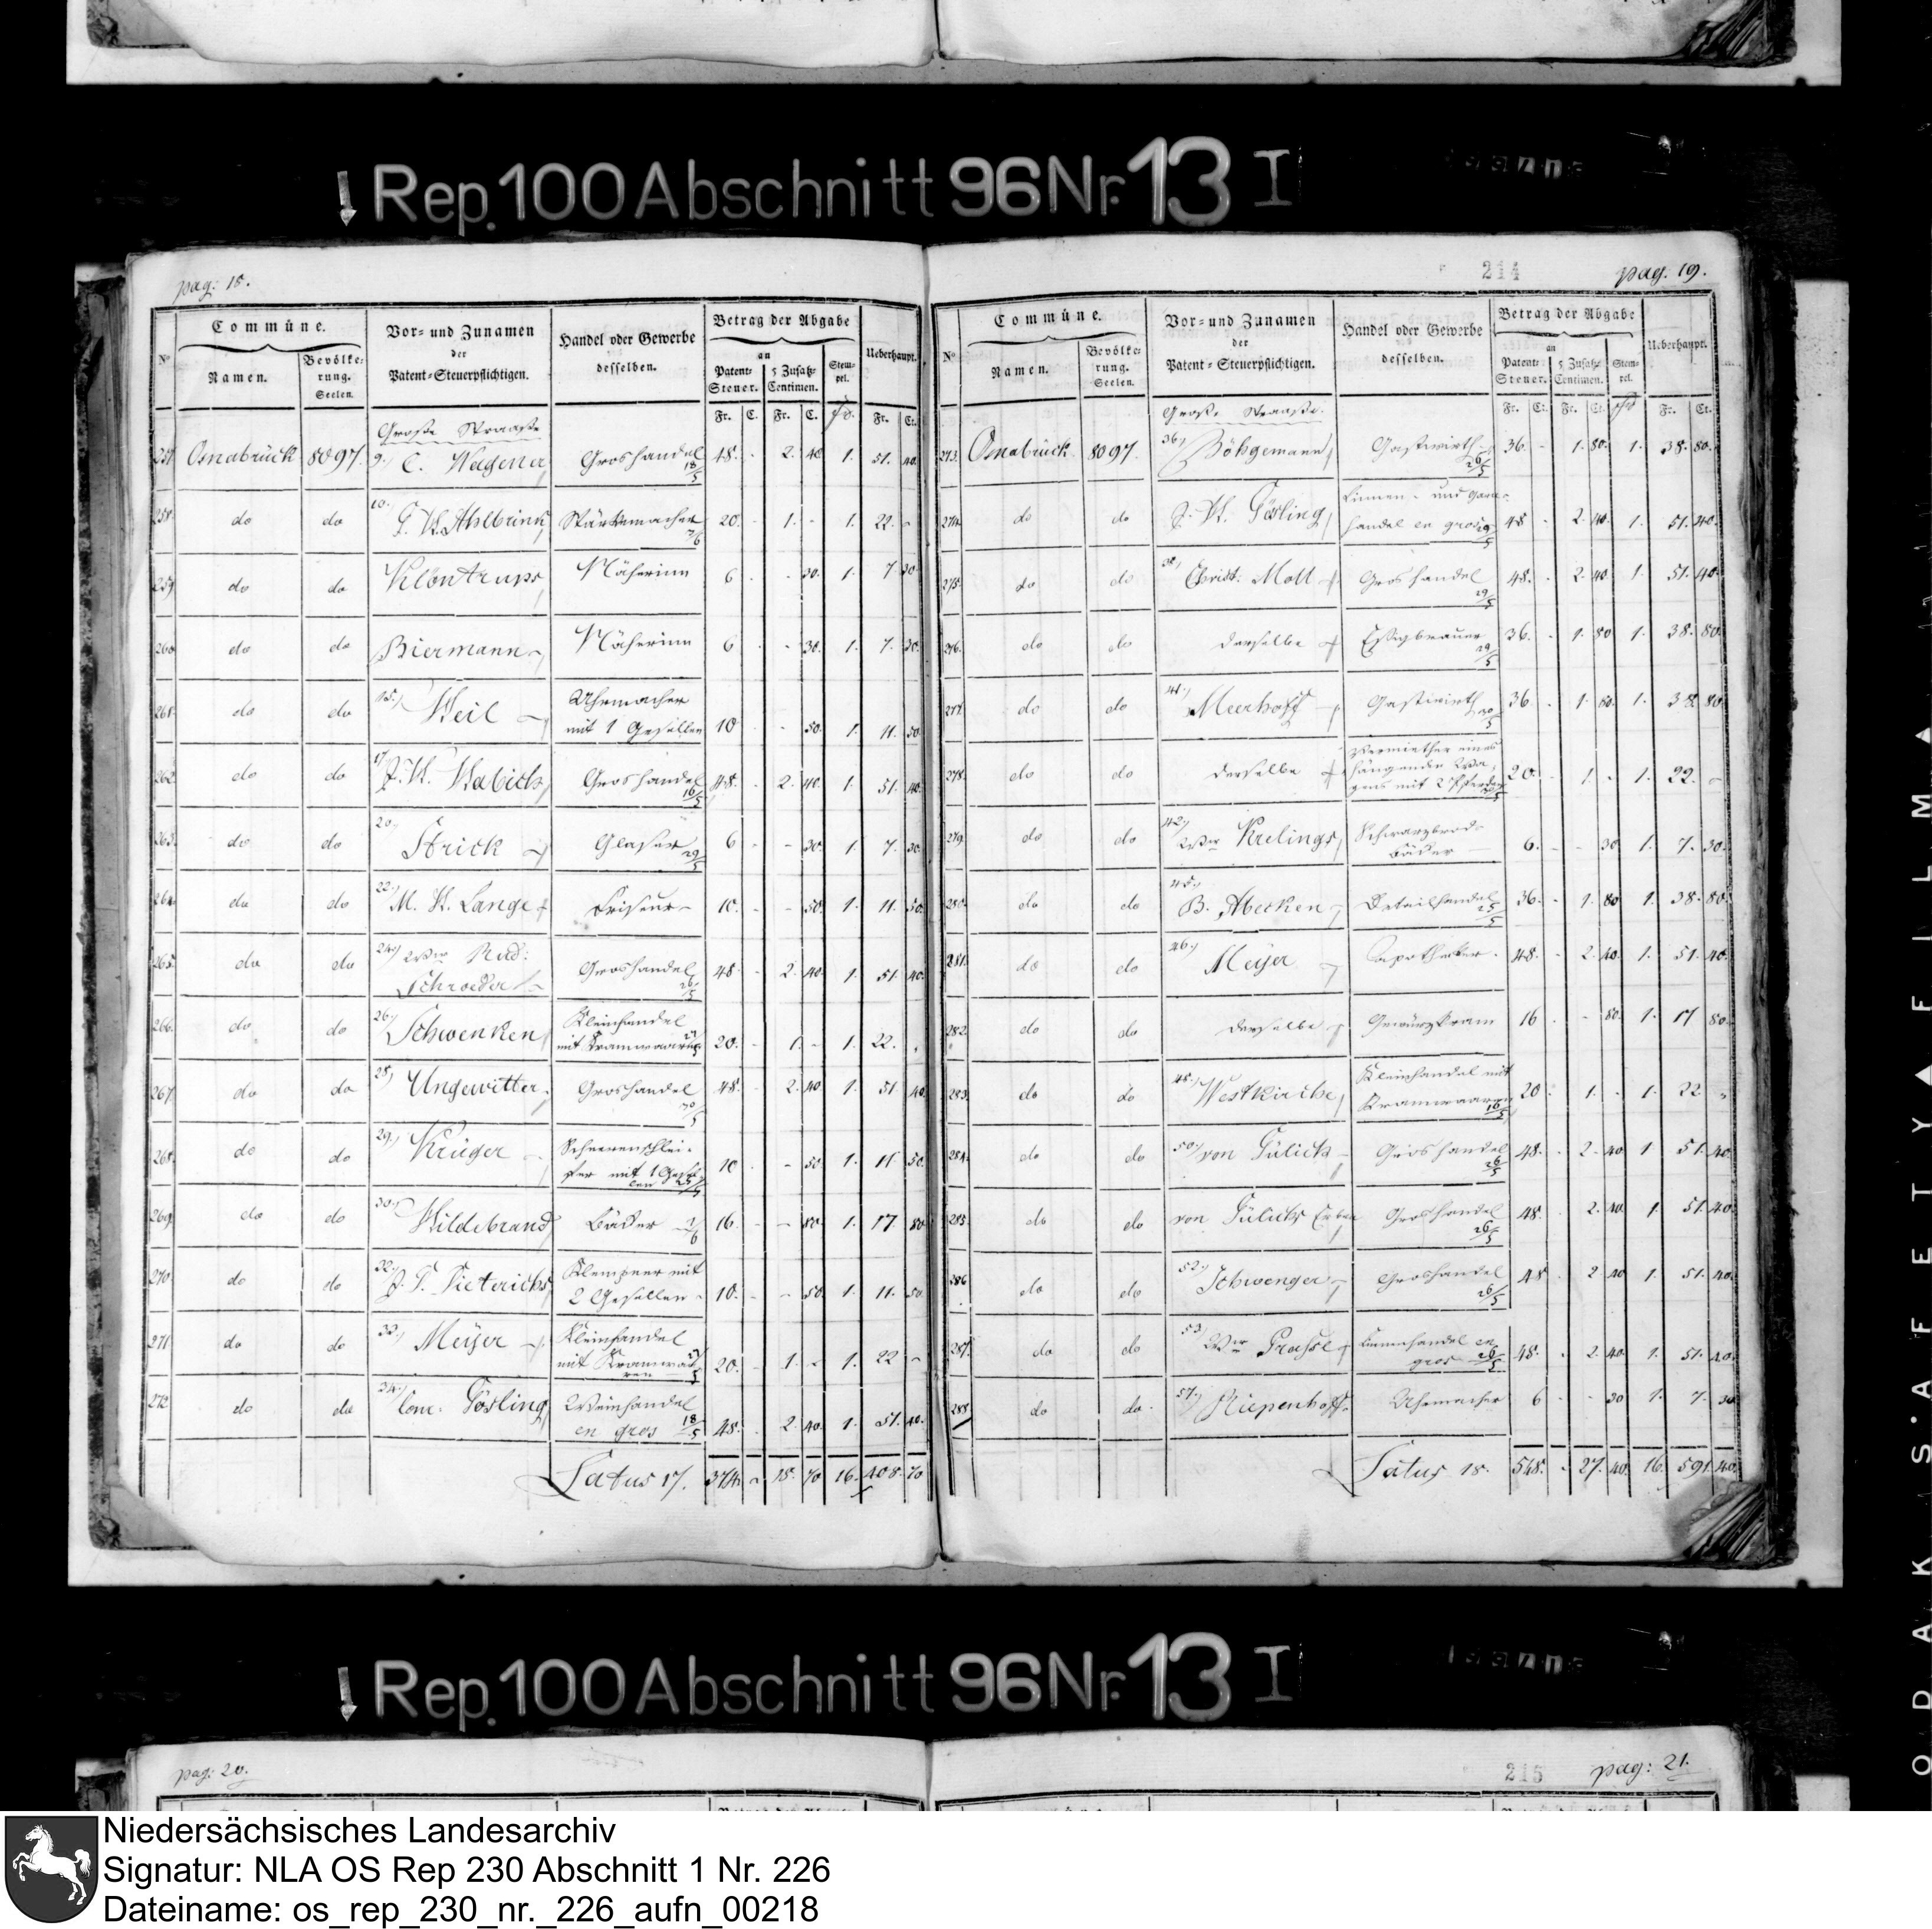 Rep. 100 Abschnitt 96 Nr. 13 I
pag: 18.
Commüne.
Vor- und Zunamen
der
Patent-Steuerpflichtigen.
Handel oder Gewerbe
desselben.
Betrag der Abgabe
Ueberhaupt.
No
Namen.
Bevölkerung.
Seelen.
an
Patent-Steuer.
5 Zusatz-Centimen.
Stempel.
Fr. C. Fr. C. Fr. Ct.
Große Straaße
257. Osnabrück 8097. 9. C. Wagener Groshandel 18/5 48. - 2. 40. 1. 51. 40.
258. do do 10. Ahlbrink 20. - 1. - 1. 22. -
259. do do Klöntrups Näherinn 6 - - 30. 1. 7 30
260. do do Biermann Näherinn 6 - - 30. 1. 7. 30.
261. do do 15. Weil Uhrmacher
mit 1 Gesellen 10 - - 50. 1. 11. 50.
262. do do 17 J. W. Wabich Groshandel 16/5 48. - 2. 40. 1. 51. 40.
263. do do 20. Strick Glaser 29/5 6 - - 30. 1. 7. 30.
264. do do 22. M. W. Lange Friseur 10. - - 50. 1. 11. 50.
265. do do 24. Wwe Rud:
Schroeder Groshandel 26/5 48. - 2. 40. 1. 51. 40.
266. do do 26. Schwenken Kleinhandel
mit Kramwaaren 20. - 1. - 1. 22. -
267. do do 28. Ungewitter Groshandel 30/5 48. - 2. 40 1. 51. 40.
268. do do 29. Krüger Scheerenschlei-
fer mit 1 Gesel-
len 10 - - 50. 1. 11 50.
269. do do 30. Hildebrand Bäcker 16. - - 80. 1. 17. 80.
270. do do 32. J. F. Dieterichs Klempner mit
2 Gesellen 10. - - 50. 1. 11. 50.
271 do do 33. Meÿer Kleinhandel
mit Kramwaa-
ren 20. - 1. - 1. 22 -
272 do do 34. Conr. Gösling Weinhandel
en gros 18/5 48. - 2. 40. 1. 51. 40.
Latus 17. 374. - 18. 70 16. 408. 70
214
pag. 19.
Commüne.
Vor- und Zunamen
der
Patent-Steuerpflichtigen.
Handel oder Gewerbe
desselben.
Betrag der Abgabe
Ueberhaupt.
No
Namen.
Bevölkerung.
Seelen.
an
Patent-Steuer.
5 Zusatz-Centimen.
Stempel.
Fr. Ct. Fr. Ct. Fr. Ct.
Große Straaße.
273. Osnabrück 8097. 36. Böhgemann Gastwirth 26/5 36. - 1. 80. 1. 38. 80.
274. do do J. W. Gösling Linnen- und Garn-
handel en gros 29/5 48 - 2. 40. 1. 51. 40.
275. do do 38. Christ. Moll Groshandel 29/5 48. - 2. 40. 1. 51. 40.
276. do do derselbe Essigbrauer 29/5 36. - 1. 80 1. 38. 80.
277. do do 41. Meerhoff Gastwirth 30/5 36 - 1. 80. 1. 38. 80
278. do do derselbe Vermiether eines
hängenden Wa-
gens mit 2 Pferden 20. - 1. - 1. 22. -
279. do do 42. Wwe Krelings Schwarzbrod-
bäcker 6. - - 30 1. 7. 30.
280. do do 45. B. Abeken Detailhandel 25/5 36. - 1. 80 1. 38. 80.
281. do do 46. Meÿer Apotheker 48. - 2. 40. 1. 51. 40.
282. do do derselbe Gewürzkram 16 - - 80. 1. 17 80.
283. do do 48. Westkirche Kleinhandel mit
Kramwaaren 16/5 20 - 1. - 1. 22 -
284. do do 50. von Gülich Groshandel 26/5 48. - 2. 40 1 51. 40.
285. do do von Gülichs Erben Groshandel 26/5 48. - 2. 40 1. 51. 40.
386 do do 52. Schwenger Groshandel 26/5 48 - 2 40 1. 51. 40.
287. do do 53. Wwe Linnenhandel en
gros 26/5 48. - 2. 40. 1. 51. 40.
288. do do. 57. Riepenhoff Uhrmacher 6 - - 30 1. 7. 30
Latus 18. 548. - 27. 40. 16. 591. 40.
Rep. 100 Abschnitt 96 Nr. 13 I
pag: 20.
215
pag: 21.
KODAK SAFETY FILM
Niedersächsisches Landesarchiv
Signatur: NLA OS Rep 230 Abschnitt 1 Nr. 226
Dateiname: os_rep_230_nr._226_aufn_00218